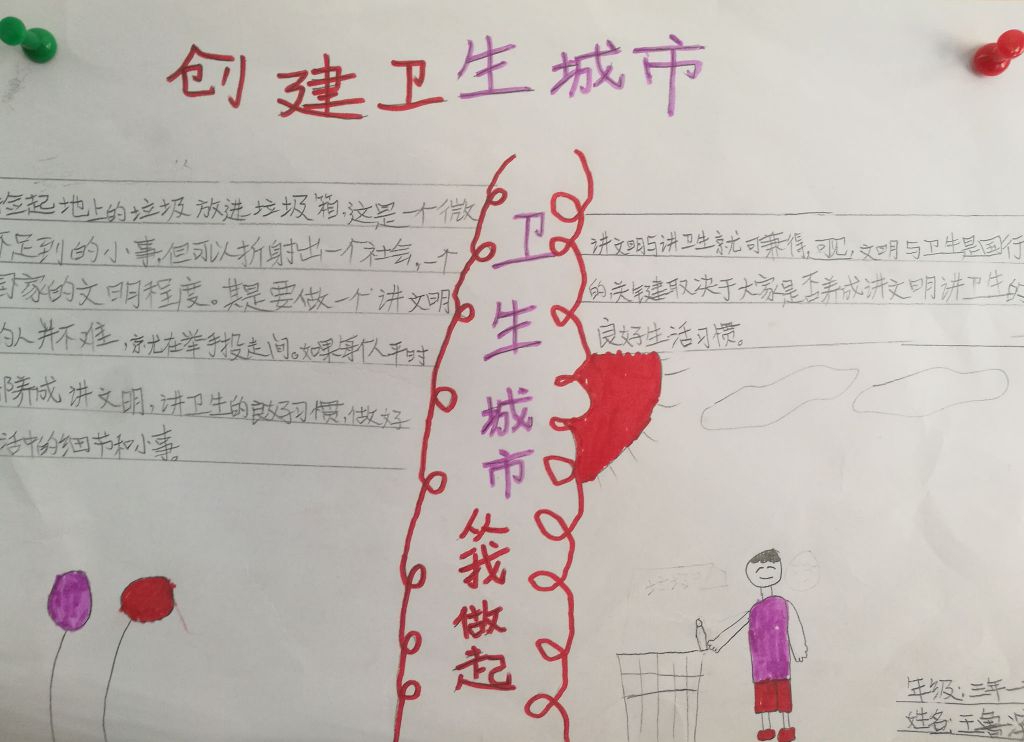 创建卫生城市
捡起地上的垃圾放进垃圾箱,这是一个微
不足到的小事,但可以折射出一个社会,一个
国家的文明程度。其是要做一个讲文明
的人并不难,就在举手投走间。如果每个人平时
都养成讲文明,讲卫生的良好习惯,做好
活中的细节和小事。
卫生城市
从我做起
讲文明与讲卫生就可兼得,可见,文明与卫生是国行
的关键取决于大家是否养成讲文明讲卫生的
良好生活习惯。
年级:三年一
姓名:王鲁